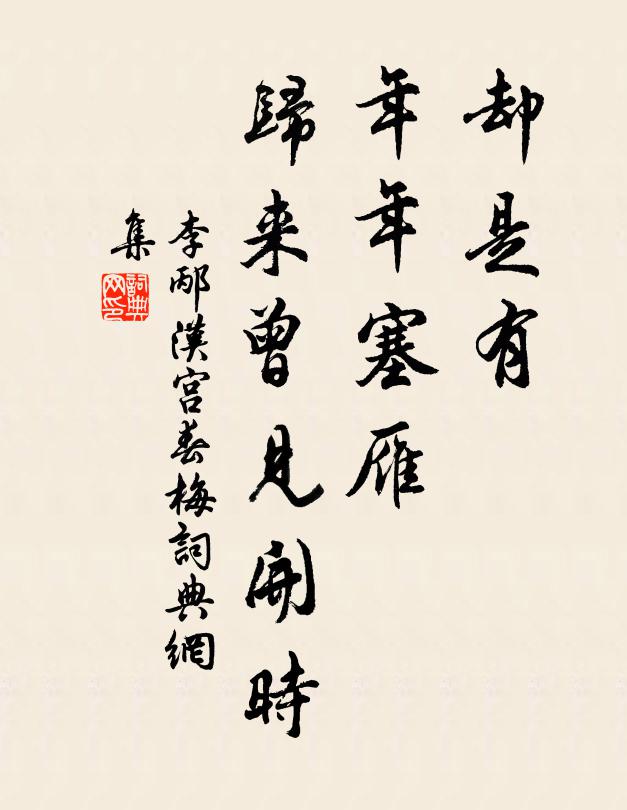 却是有
年年塞雁
歸来曾見開時
李邴漢宮春梅詞典網
集
詞典網印